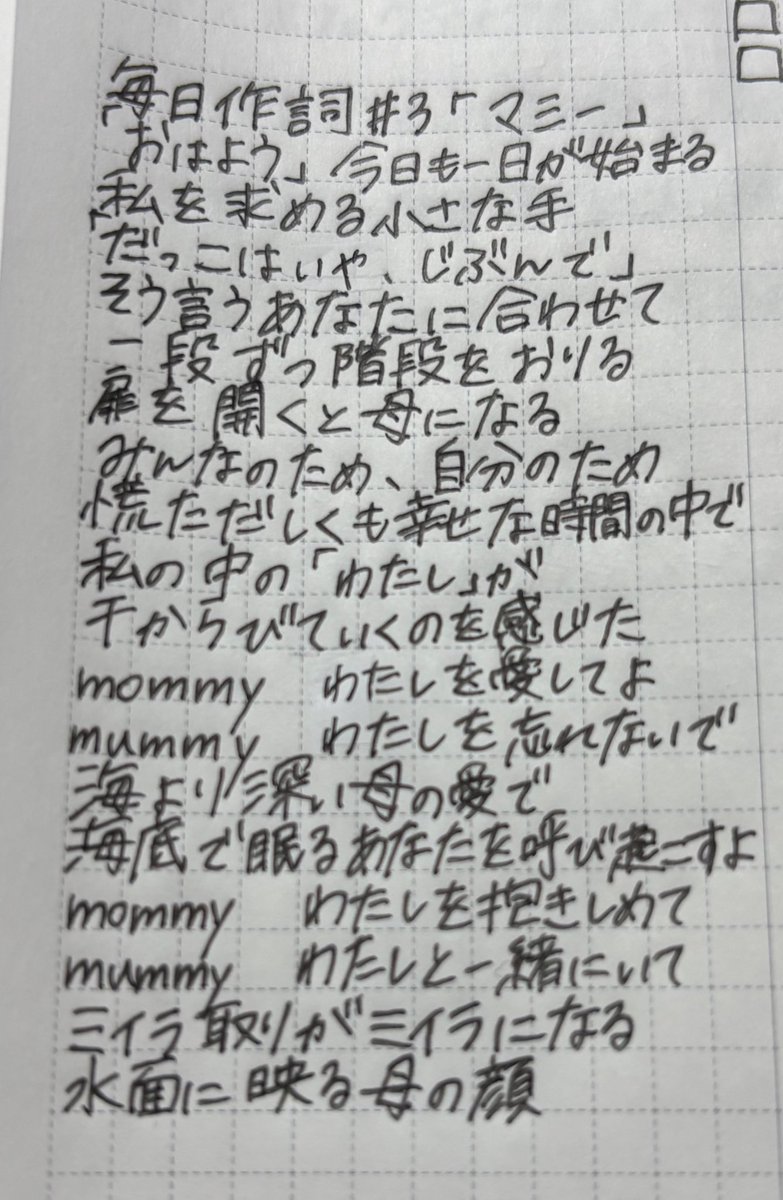 毎日作詞#3「マミー」
「おはよう」今日も一日が始まる
私を求める小さな手
「だっこはいや、じぶんで」
そう言うあなたに合わせて
一段ずつ階段をおりる
扉を開くと母になる
みんなのため、自分のため
慌ただしくも幸せな時間の中で
私の中の「わたし」が
干からびていくのを感じた
mommy わたしを愛してよ
mummy わたしを忘れないで
海より深い母の愛で
海底で眠るあなたを呼び起こすよ
mommy わたしを抱きしめて
mummy わたしと一緒にいて
ミイラ取りがミイラになる
水面に映る母の顔